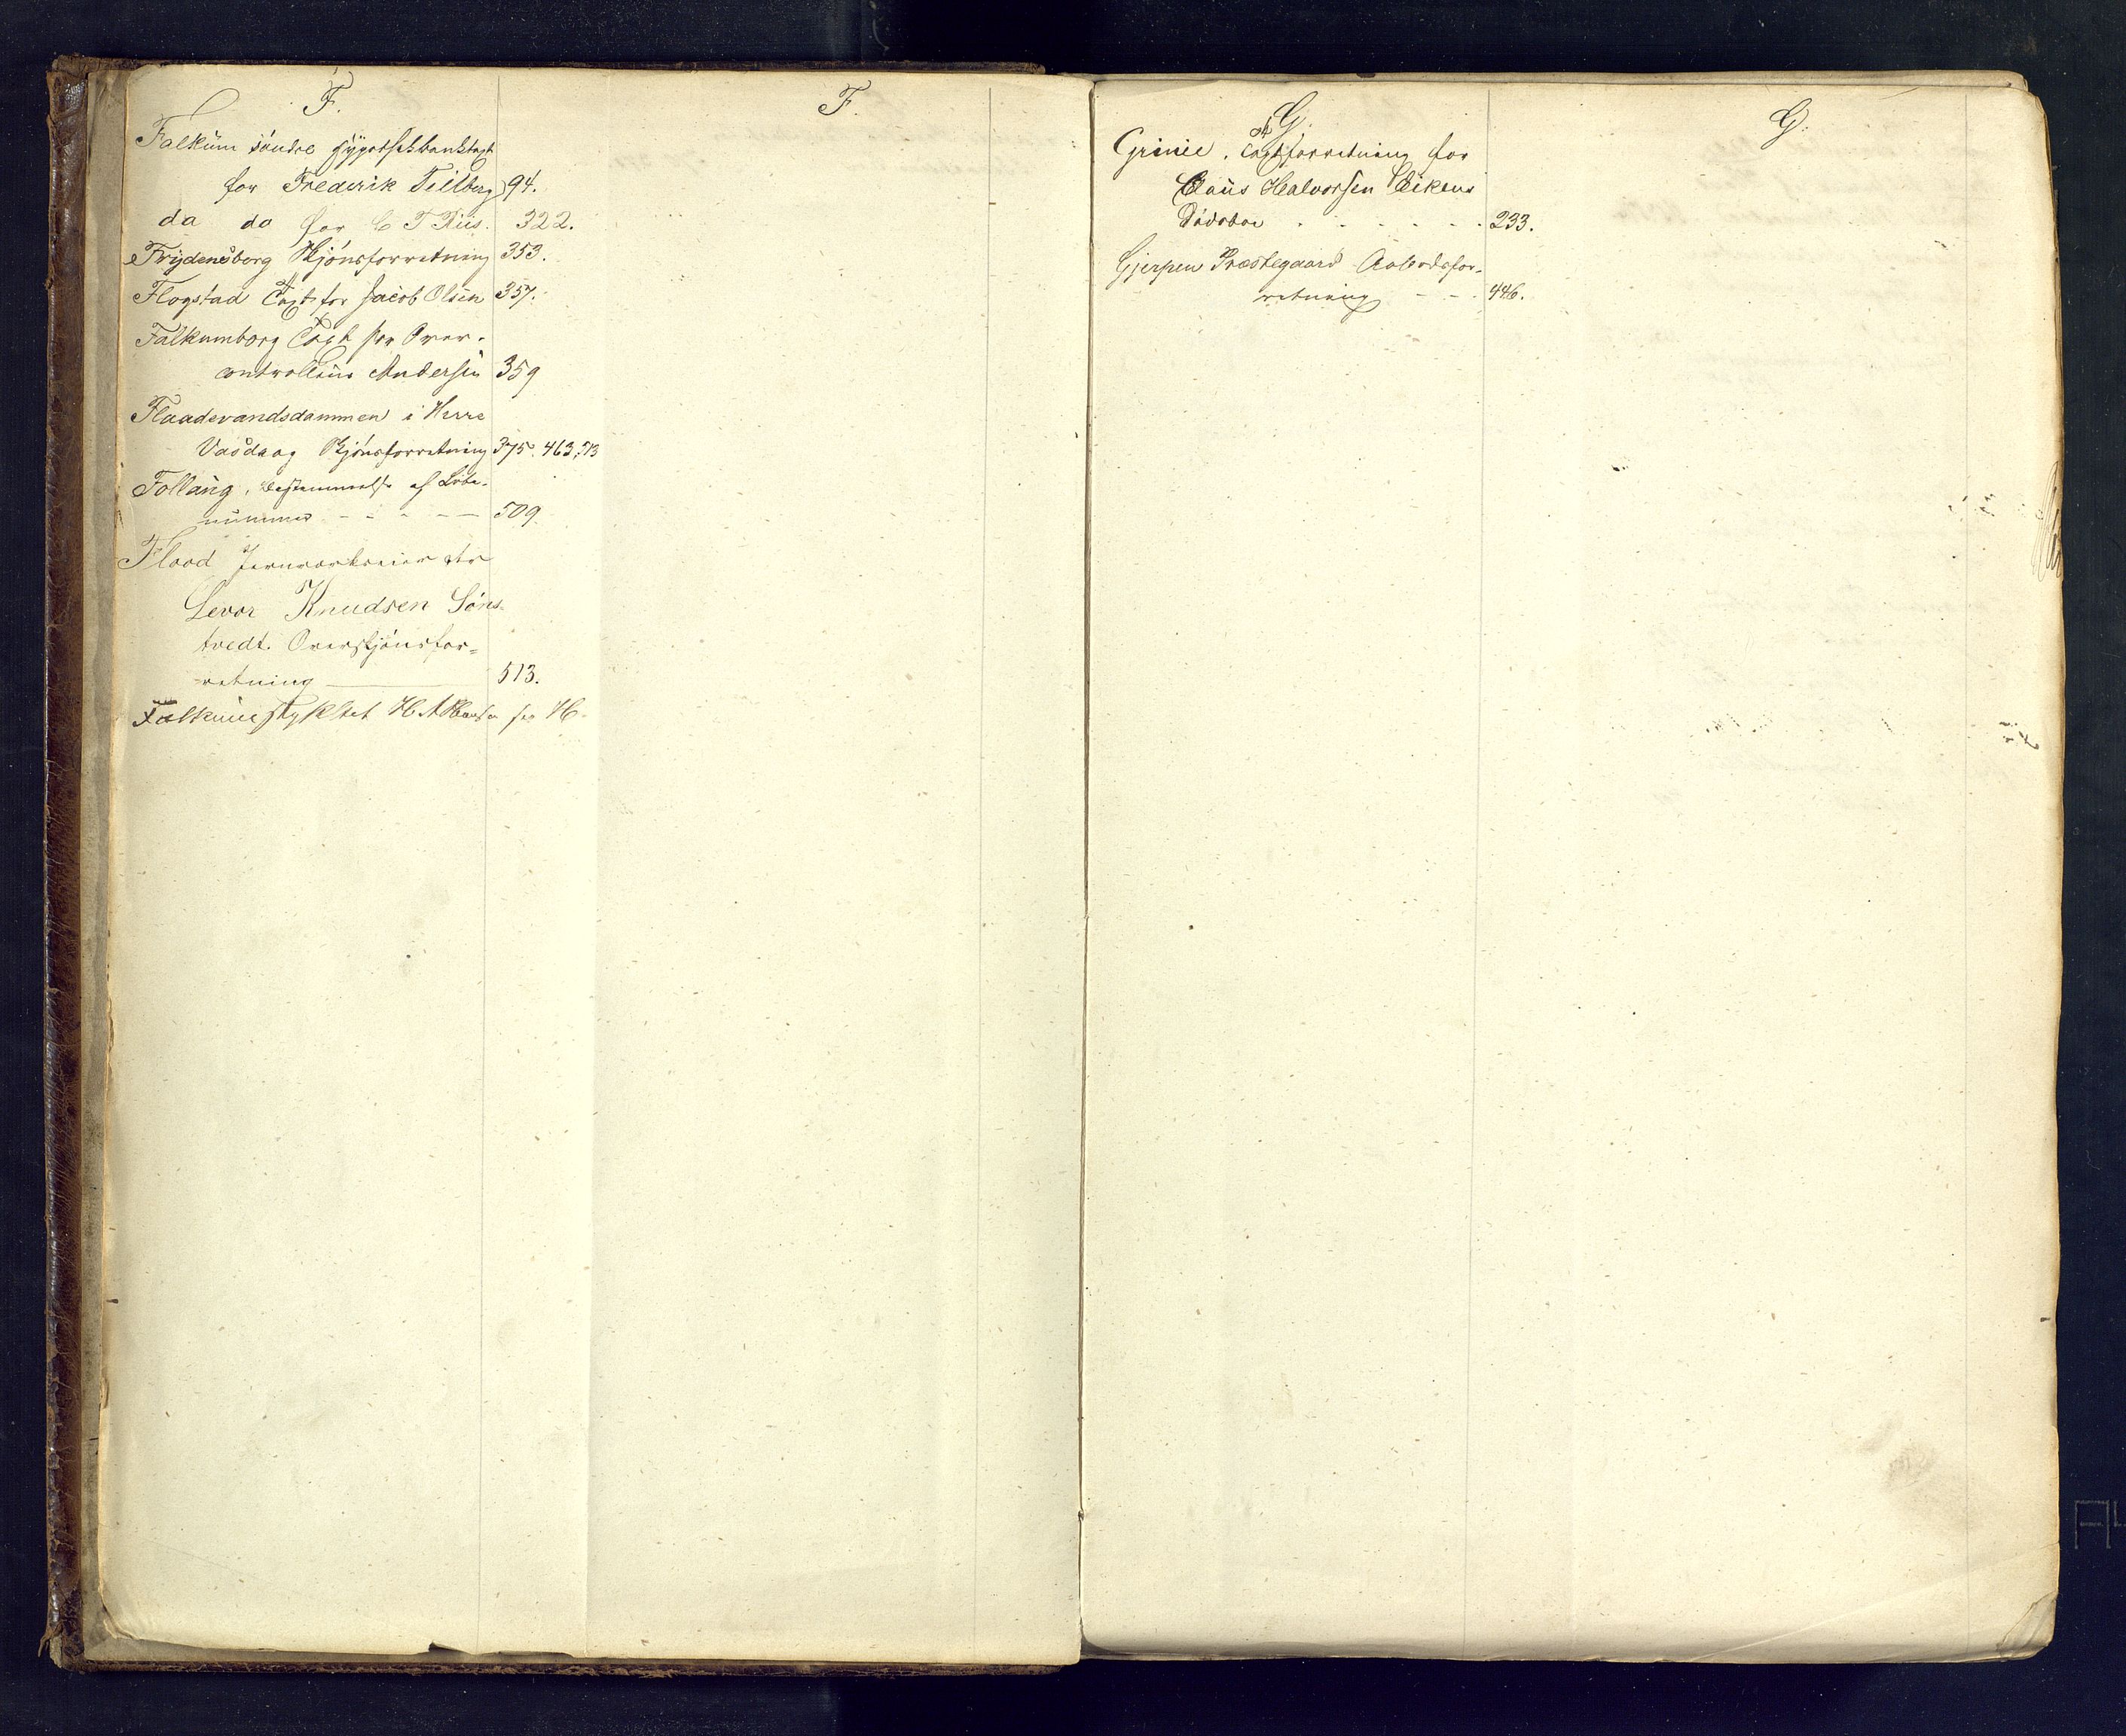 F.
Falkum søndre Hypothekbanktaxt
for Frederik Tellberg 94.
do do for C T Riis. 322.
Frydensborg Skjönsforretning 353.
Flogstad Taxt for Jacob Olsen 357.
Falkumborg Taxt for Over-
controlleur Andersen 359
Flaadevandsdammen i Herre
Vasdrag Skjönsforretning 375. 463, 513
Follaug, Bestemmelse af Löbe-
nummer 509.
Flood Jernværkseier ctr
Levor Knudsen Söns-
tvedt. Overskjönsfor-
retning 513.
Falkumstykket H. A. Hansen se H.
F.
G.
Grinie, Taxtforretning for
Claus Halvorsen Eikens
Dödsbo 233.
Gjerpen Præstegaard Aabodsfor-
retning 446.
G.